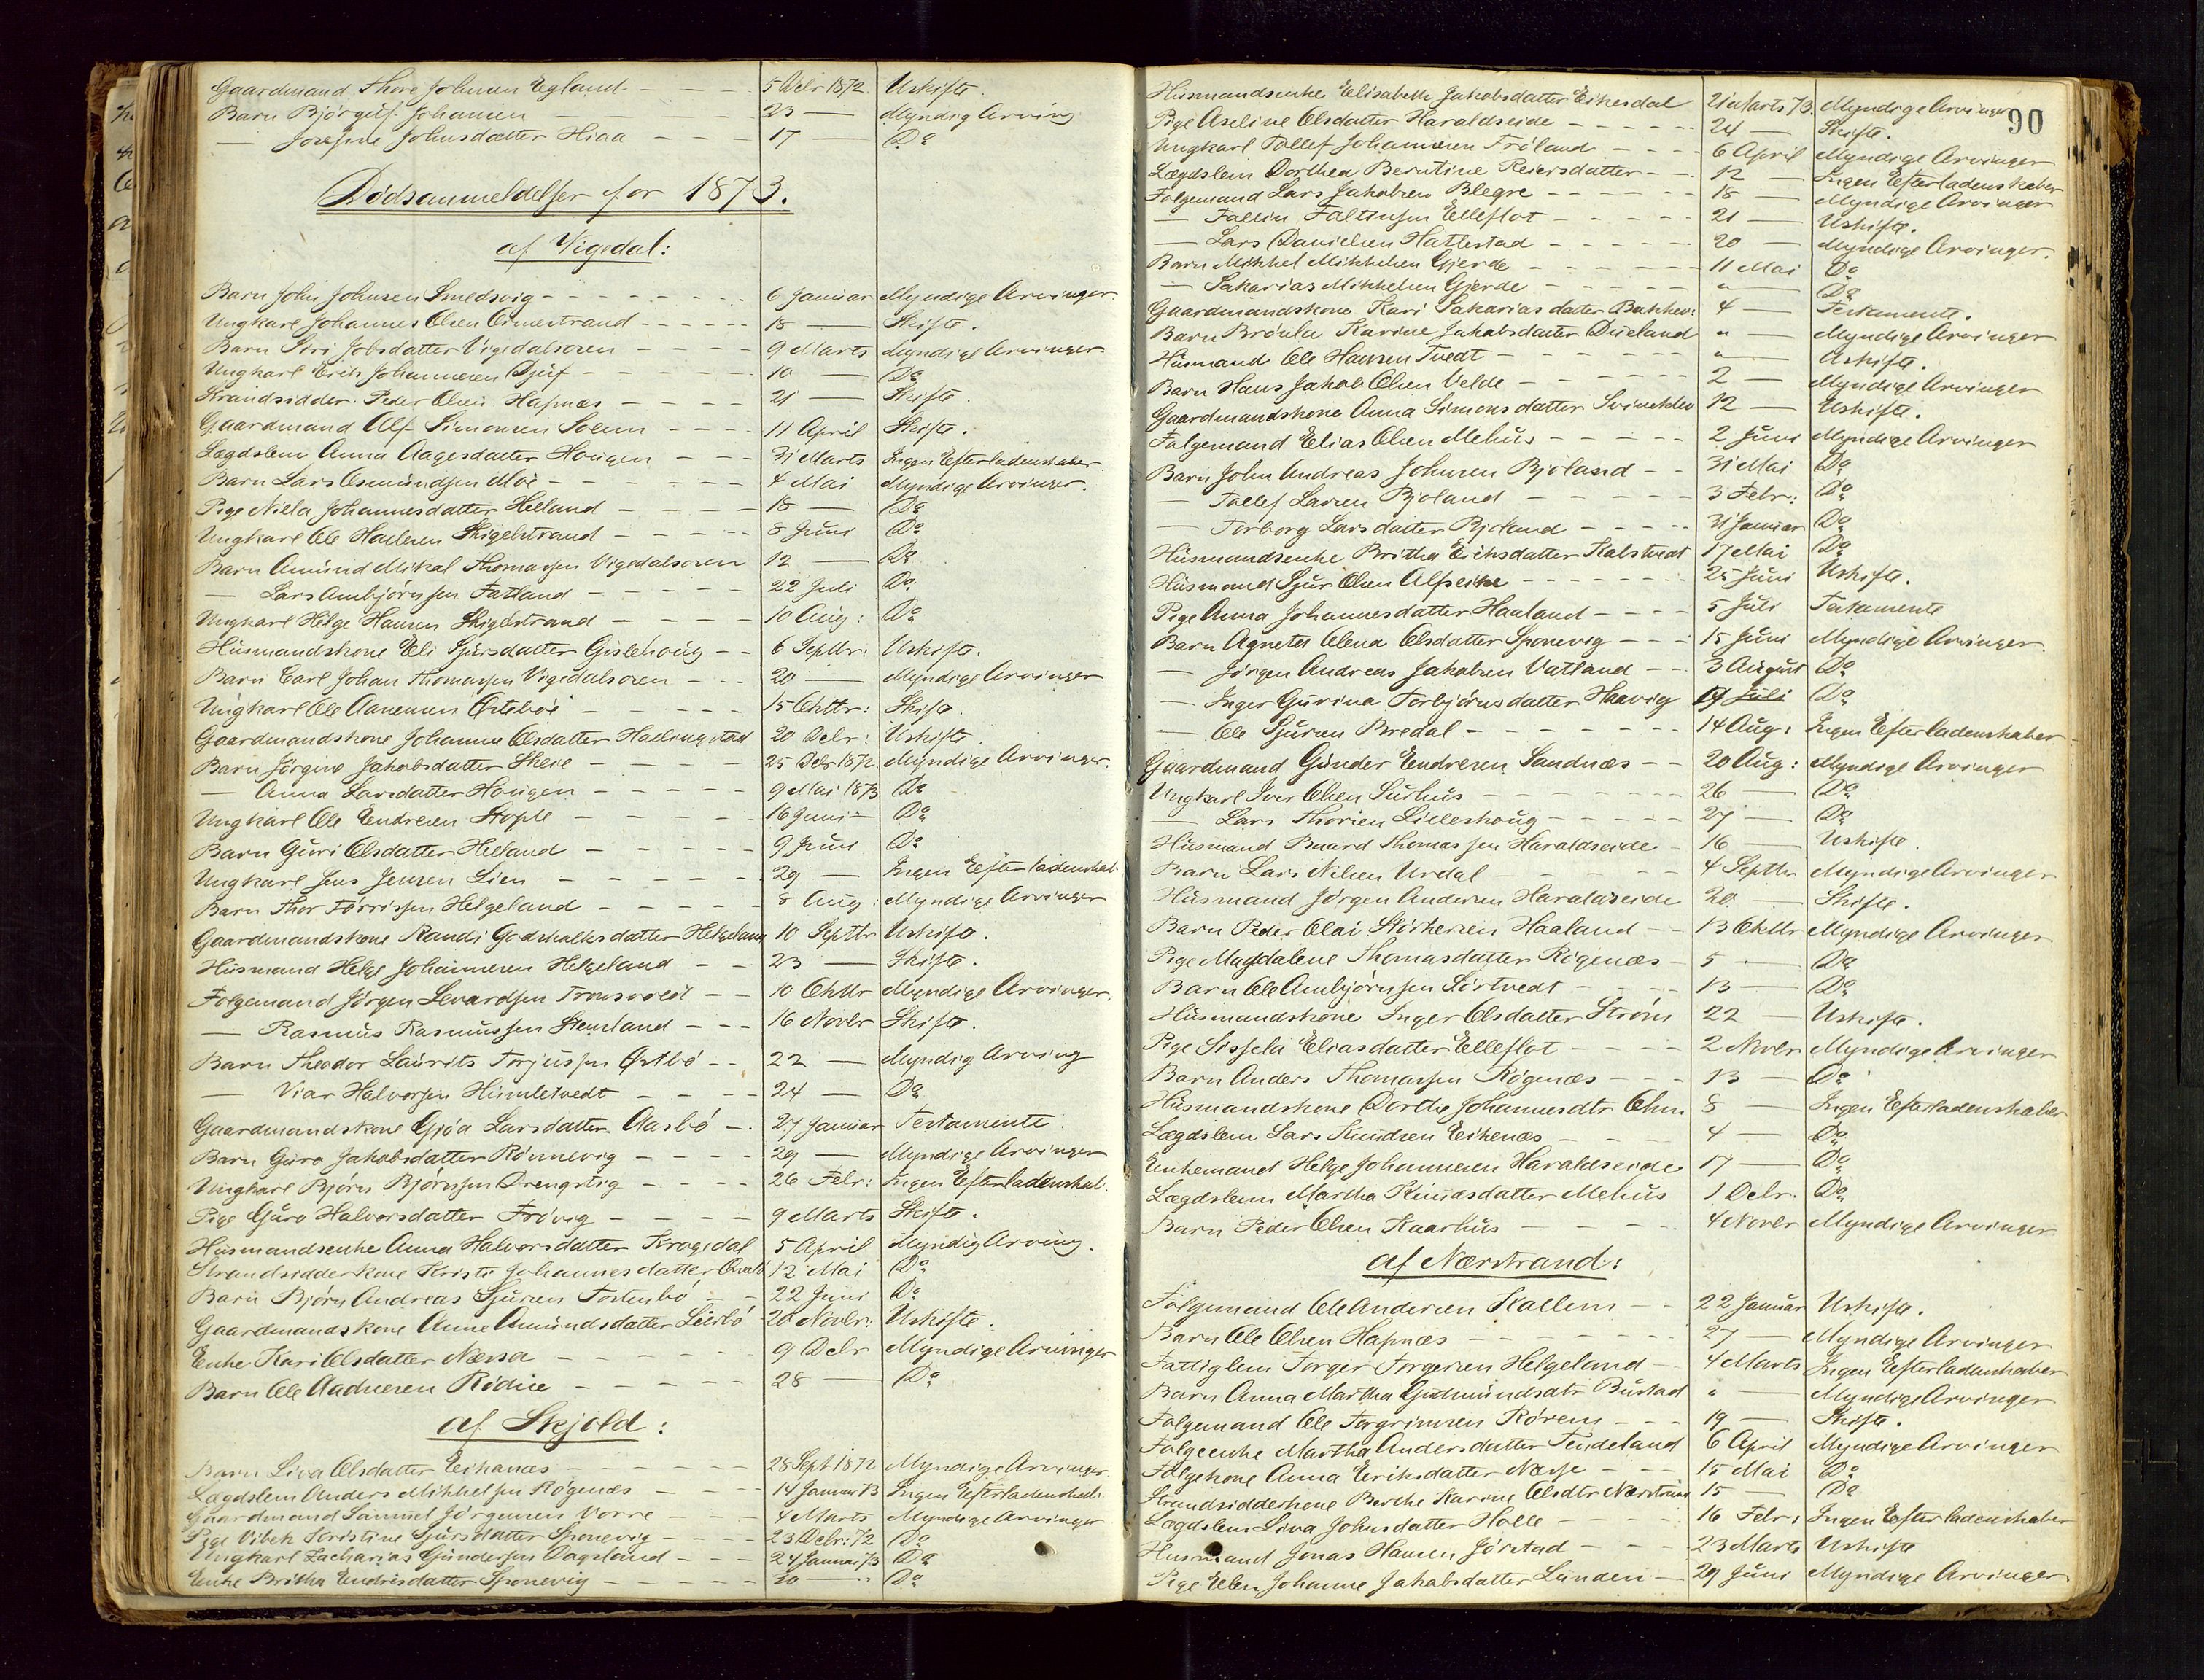 Gaardmand Thore Johnsen Egland - - - 5 Decbr 1872. Uskifte.
Barn Bjørgulf Johansen - - - 23 — Myndig Arving
— Josefine Johnsdatter Hiaa - - 17 — Do
Dødsanmeldelser for 1873.
af Vigedal:
Barn John Johnsen Smedsvig - - - 6 Januar Myndige Arvinger.
Ungkarl Johannes Olsen Ormestrand - - - 18 — Skifte.
Barn Siri Jobsdatter Vigedalsøren - - - 9 Marts Myndige Arvinger.
Ungkarl Erik Johannesen Djuf - - - 10 — Do
Strandsidder Peder Olsen Hapnæs - - - 21 — Skifte.
Gaardmand Alf Simonsen Soenn - - - 11 April Skifte.
Lægdslem Anna Aagesdatter Hougen - - 31 Marts Ingen Efterladenskaber.
Barn Lars Osmundsen Moe - - - 4 Mai Myndige Arvinger.
Pige Niela Johannesdatter Helland - - - 18 — Do
Ungkarl Ole Hansen Skigelstrand - - - 8 Juni Do
Barn Amund Mikal Thomassen Vigedalsøren 12 — Do
— Lars Ambjørnsen Fatland - - - 22 Juli Do
Ungkarl Helge Hansen Skigelstrand - - - 10 Aug: Do
Husmandskone Eli Sjursdatter Gislehoug - - 6 Septbr: Uskifte.
Barn Carl Johan Thomassen Vigedalsøren - - - 20 — Myndige Arvinger
Ungkarl Ole Aanensen Østebøe - - - 15 Oktbr: Skifte.
Gaardmandskone Johanne Olsdatter Hallingstad 20 Decbr: Uskifte.
Barn Jørgine Jakobsdatter Skeie - - - 25 Decbr 1872 Myndige Arvinger.
— Anna Larsdatter Hougen - - - 9 Mai 1873 Do
Ungkarl Ole Endresen Stople - - - 16 Juni — Do
Barn Guri Olsdatter Helland - - - 9 Juni Do
Ungkarl Jens Jensen Lien - - - 29 — Ingen Efterladenskab
Barn Thor Tørrissen Helgeland - - - 8 Aug: Myndige Arvinger
Gaardmandskone Randi Godskalksdatter Helgeland 10 Septbr Uskifte.
Husmand Helge Johannesen Helgeland - - 23 — Skifte.
Folgemand Jørgen Levardsen Tronsvold - - 10 Oktbr Myndige Arvinger.
— Rasmus Rasmussen Stemland - - - 16 Novbr Skifte.
Barn Theodor Laurits Torjussen Østbø - - 22 — Myndig Arving
— Viar Halvorsen Humletvedt - - - 24 — Do
Gaardmandskone Gjøa Larsdatter Aasbø - 27 Januar Testamente
Barn Guro Jakobsdatter Rønnevig - - - 29 — Myndige Arvinger
Ungkarl Bjørn Bjørnsen Drengstig - - - 26 Febr: Ingen Efterladenskab.
Pige Guro Halvorsdatter Frøvig - - - 9 Marts Skifte.
Husmandsenke Anna Halvorsdatter Krogedal 5 April Myndig Arving.
Strandsidderkone Kristi Johannesdatter 12 Mai Do
Barn Bjørn Andreas Sjursen Tostenbø - - 22 Juni Do
Gaardmandskone Anne Amundsdatter Leirbø 20 Novbr: Uskifte.
Enke Kari Olsdatter Næssa - - - 9 Decbr Myndige Arvinger
Barn Ole Aadnesen Rødne - - - 28 — Do
af Skjold:
Barn Liva Olsdatter Eikanæs - - - 28 Sept 1872 Myndige Arvinger
Lægdslem Anders Mikkelsen Røgenæs - - - 14 Januar 73 Ingen Efterladenskab.
Gaardmand Samuel Jørgensen Vorre - - - 4 Marts Myndige Arvinger
Pige Vibek Kristine Sjursdatter Sponevig - - 23 Decbr: 72 Do
Ungkarl Zacharias Gundersen Dagsland - - - 24 Januar 73 Do
Enke Britha Endresdatter Sponevig - - - 30 — Do
90
Husmandsenke Elisabeth Jakobsdatter Eikesdal 21 Marts 73. Myndige Arvinger
Pige Aseline Olsdatter Haraldseide - - - 24 — Skifte.
Ungkarl Tollef Johannesen Frøland - - - 6 April Myndige Arvinger
Lægdslem Dorthea Berntine Reiersdatter - - 12 — Ingen Efterladenskaber
Folgemand Lars Jakobsen Blegre - - - 18 — Myndige Arvinger
— Fallin Faltinsen Elleflot - - - 21 — Uskifte.
— Lars Danielsen Hattestad - - - 20 — Myndige Arvinger.
Barn Mikkel Mikkelsen Gjerde - - - 11 Mai Do
— Sakarias Mikkelsen Gjerde - - - " — Do
Gaardmandskone Kari Sakariasdatter Bakken: 4 — Testamente.
Barn Brønla Karine Jakobsdatter Dueland " — Myndige Arvinger
Husmand Ole Hansen Tvedt - - - " — Uskifte.
Barn Hans Jakob Olsen Velde - - - 2 — Myndige Arvinger
Gaardmandskone Anna Simonsdatter Svineklev 12 — Uskifte.
Folgemand Elias Olsen Mehus - - - 2 Juni Myndige Arvinger
Barn John Andreas Johnsen Bjoland - - 31 Mai Do
— Tollef Larsen Bjoland - - - 3 Febr: Do
— Torborg Larsdatter Bjoland - - - 31 Januar Do
Husmandsenke Britha Eriksdatter Kalstvedt 17 Mai Do
Husmand Sjur Olsen Alfseike - - - 25 Juni Uskifte.
Pige Anna Johannesdatter Haaland - - - 5 Juli Testamente
Barn Agnetha Olena Olsdatter Sponevig - - - 15 Juni Myndige Arvinger.
— Jørgen Andreas Jakobsen Vatland - - 3 August Do
— Inger Gurina Torbjørnsdatter Haavig 19 Juli Do
— Ole Sjursen Bredal - - - 14 Aug: Ingen Efterladenskaber
Gaardmand Gunder Endresen Sandnæs - - 20 Aug: Myndige Arvinger
Ungkarl Iver Olsen Surhus - - - 26 — Do
— Lars Thorsen Lilleskoug - - - 27 — Do
Husmand Baard Thomassen Haraldseide - 16 — Uskifte.
Barn Lars Nilsen Urdal - - - 4 Septbr Myndige Arvinger
Husmand Jørgen Andersen Haraldseide 20 — Skifte.
Barn Peder Olai Størkersen Haaland - - 13 Oktbr Myndige Arvinger.
Pige Magdalene Thomasdatter Røgenæs - 5 — Do
Barn Ole Ambjørnsen Sørtvedt - - - 13 — Do
Husmandskone Inger Olsdatter Strøm 22 — Uskifte.
Pige Sissela Eliasdatter Elleflot - - - 2 Novbr Myndige Arvinger
Barn Anders Thomassen Røgenæs - - - 13 — Do
Husmandskone Dorthe Johannesdtr Ohm 8 — Ingen Efterladenskaber
Lægdslem Lars Knudsen Eikenæs - - - 4 — Do
Enkemand Helge Johannesen Haraldseide 17 — Do
Lægdslem Martha Knudsdatter Mehus 1 Decbr. Do
Barn Peder Olsen Kaarhus - - - 4 Novbr Myndige Arvinger
af Nærstrand:
Folgemand Ole Andersen Kallem - - 22 Januar Uskifte.
Barn Ole Olsen Hapnæs - - - 27 — Myndige Arvinger
Fattiglem Torger Torgersen Helgeland - 4 Marts Ingen Efterladenskaber
Barn Anna Martha Gudmundsdtr Bustad " — Myndige Arvinger
Folgemand Ole Torgrimsen Rørem - - - 19 — Skifte.
Folgeenke Martha Andersdatter Tendeland 6 April Myndige Arvinger
Folgekone Anna Eriksdatter Næsse - - - 15 Mai Do
Strandsidderkone Berthe Karine Olsdtr Nærstrand 15 — Do
Lægdslem Liva Johnsdatter Holle - - - 16 Febr: Ingen Efterladenskaber
Husmand Jonas Hansen Jørstad - - - 23 Marts Uskifte
Pige Elen Johanne Jakobsdatter Lunden - 29 Juni Myndige Arvinger